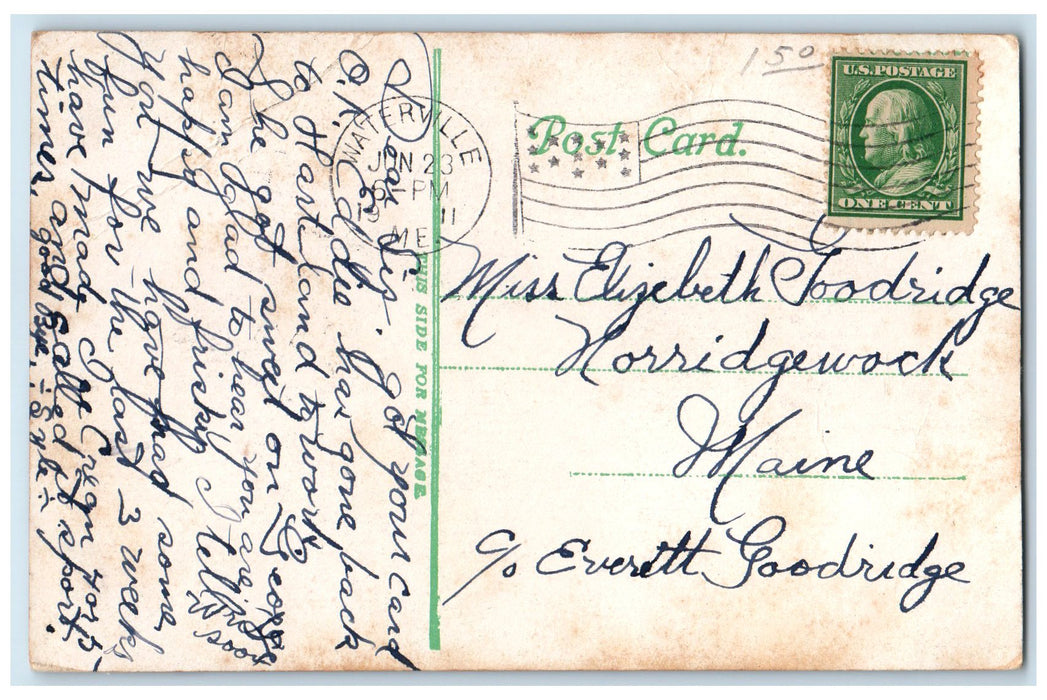 150
U.S. POSTAGE
ONE CENT
Post Card.
WATERVILLE
JUN 23
PM
11
ME.
THIS SIDE FOR MESSAGE
Miss Elizebeth Goodridge
Norridgewock
Maine
c/o Everett Goodridge
Dear Sis. got your card
O.K. Eddie has gone back
to Hartland to work
She got sweet on George
I am glad to hear you are
happy and frisky I tell
you we have had some
fun for the last 3 weeks
have made Ice Cream
times, and called it sport.
good bye -